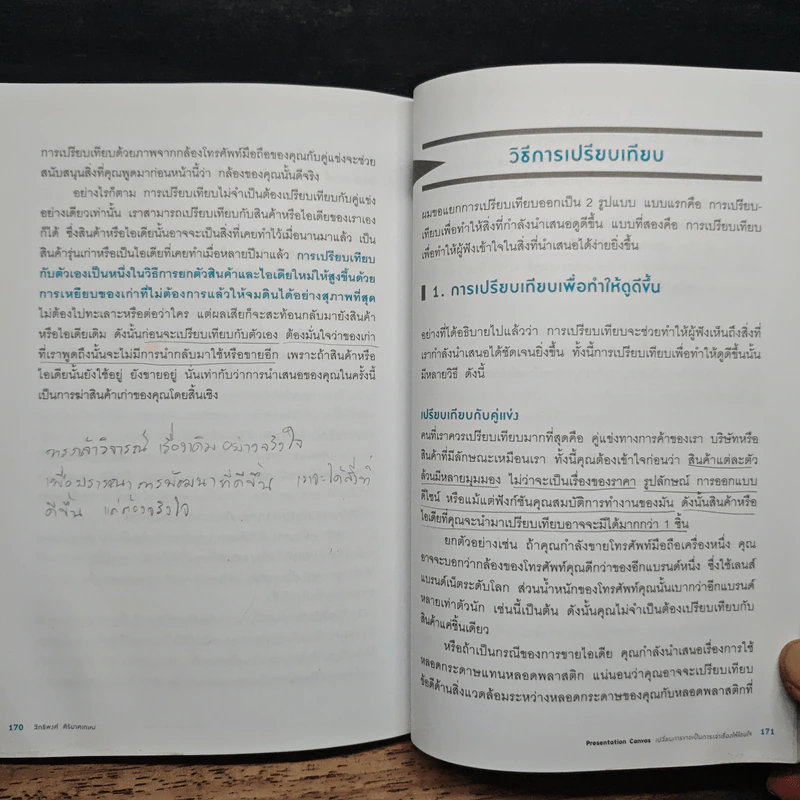 การเปรียบเทียบด้วยภาพจากกล้องโทรศัพท์มือถือของคุณกับคู่แข่งจะช่วย
สนับสนุนสิ่งที่คุณพูดมาก่อนหน้านี้ว่า กล้องของคุณนั้นดีจริง
อย่างไรก็ตาม การเปรียบเทียบไม่จำเป็นต้องเปรียบเทียบกับคู่แข่ง
อย่างเดียวเท่านั้น เราสามารถเปรียบเทียบกับสินค้าหรือไอเดียของเราเอง
ก็ได้ ซึ่งสินค้าหรือไอเดียนั้นอาจจะเป็นสิ่งที่เคยทำไว้เมื่อนานมาแล้ว เป็น
สินค้ารุ่นเก่าหรือเป็นไอเดียที่เคยทำเมื่อหลายปีมาแล้ว การเปรียบเทียบ
กับตัวเองเป็นหนึ่งในวิธีการยกตัวสินค้าและไอเดียใหม่ให้สูงขึ้นด้วย
การเหยียบของเก่าที่ไม่ต้องการแล้วให้จมดินได้อย่างสุภาพที่สุด
ไม่ต้องไปทะเลาะหรือต่อว่าใคร แต่ผลเสียก็จะสะท้อนกลับมายังสินค้า
หรือไอเดียเดิม ดังนั้นก่อนจะเปรียบเทียบกับตัวเอง ต้องมั่นใจว่าของเก่า
ที่เราพูดถึงนั้นจะไม่มีการนำกลับมาใช้หรือขายอีก เพราะถ้าสินค้าหรือ
ไอเดียนั้นยังใช้อยู่ ยังขายอยู่ นั่นเท่ากับว่าการนำเสนอของคุณในครั้งนี้
เป็นการฆ่าสินค้าเก่าของคุณโดยสิ้นเชิง
การกล้าวิจารณ์ เรื่องเดิม อย่างจริงใจ
เพื่อปรารถนา การพัฒนาที่ดีขึ้น เราจะได้สิ่งที่
ดีขึ้น แค่ต้องจริงใจ
170 สิทธิพงศ์ ศิริมาศเกษม
วิธีการเปรียบเทียบ
ผมขอแยกการเปรียบเทียบออกเป็น 2 รูปแบบ แบบแรกคือ การเปรียบ-
เทียบเพื่อทำให้สิ่งที่กำลังนำเสนอดูดีขึ้น แบบที่สองคือ การเปรียบเทียบ
เพื่อทำให้ผู้ฟังเข้าใจในสิ่งที่นำเสนอได้ง่ายยิ่งขึ้น
1. การเปรียบเทียบเพื่อทำให้ดูดีขึ้น
อย่างที่ได้อธิบายไปแล้วว่า การเปรียบเทียบจะช่วยทำให้ผู้ฟังเห็นถึงสิ่งที่
เรากำลังนำเสนอได้ชัดเจนยิ่งขึ้น ทั้งนี้การเปรียบเทียบเพื่อทำให้ดูดีขึ้นนั้น
มีหลายวิธี ดังนี้
เปรียบเทียบกับคู่แข่ง
คนที่เราควรเปรียบเทียบมากที่สุดคือ คู่แข่งทางการค้าของเรา บริษัทหรือ
สินค้าที่มีลักษณะเหมือนเรา ทั้งนี้คุณต้องเข้าใจก่อนว่า สินค้าแต่ละตัว
ล้วนมีหลายมุมมอง ไม่ว่าจะเป็นเรื่องของราคา รูปลักษณ์ การออกแบบ
ดีไซน์ หรือแม้แต่ฟังก์ชันคุณสมบัติการทำงานของมัน ดังนั้นสินค้าหรือ
ไอเดียที่คุณจะนำมาเปรียบเทียบอาจจะมีได้มากกว่า 1 ชิ้น
ยกตัวอย่างเช่น ถ้าคุณกำลังขายโทรศัพท์มือถือเครื่องหนึ่ง คุณ
อาจจะบอกว่ากล้องของโทรศัพท์คุณดีกว่าของอีกแบรนด์หนึ่ง ซึ่งใช้เลนส์
แบรนด์เน็ตระดับโลก ส่วนน้ำหนักของโทรศัพท์คุณนั้นเบากว่าอีกแบรนด์
หลายเท่าตัวนัก เช่นนี้เป็นต้น ดังนั้นคุณไม่จำเป็นต้องเปรียบเทียบกับ
สินค้าแค่ชิ้นเดียว
หรือถ้าเป็นกรณีของการขายไอเดีย คุณกำลังนำเสนอเรื่องการใช้
หลอดกระดาษแทนหลอดพลาสติก แน่นอนว่าคุณอาจจะเปรียบเทียบ
ข้อดีด้านสิ่งแวดล้อมระหว่างหลอดกระดาษของคุณกับหลอดพลาสติกที่
Presentation Canvas เปลี่ยนการขายเป็นการเล่าเรื่องให้โดนใจ 171